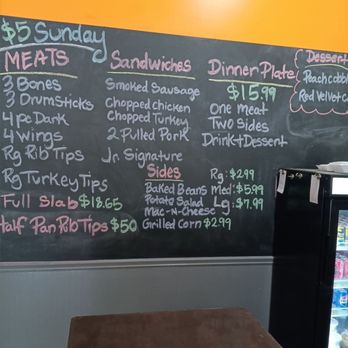 $5 Sunday
MEATS
3 Bones
3 Drumsticks
4 pc Dark
4 Wings
Rg Rib Tips
Rg Turkey Tips
Full Slab $18.65
Half Pan Rib Tips $50
Sandwiches
Smoked Sausage
Chopped Chicken
Chopped Turkey
2 Pulled Pork
Jr. Signature
Sides
Baked Beans
Potato Salad
Mac-N-Cheese
Grilled Corn $2.99
Rg: $2.99
Med: $5.99
Lg: $7.99
Dinner Plate
$15.99
One meat
Two Sides
Drink + Dessert
Dessert
Peach cobbl
Red Velvet C